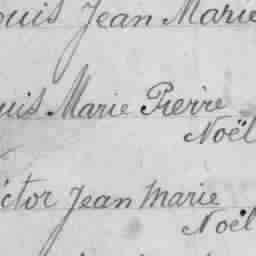 ouis Jean Marie
ouis Marie Pierre
Noël
ictor Jean Marie
Noël